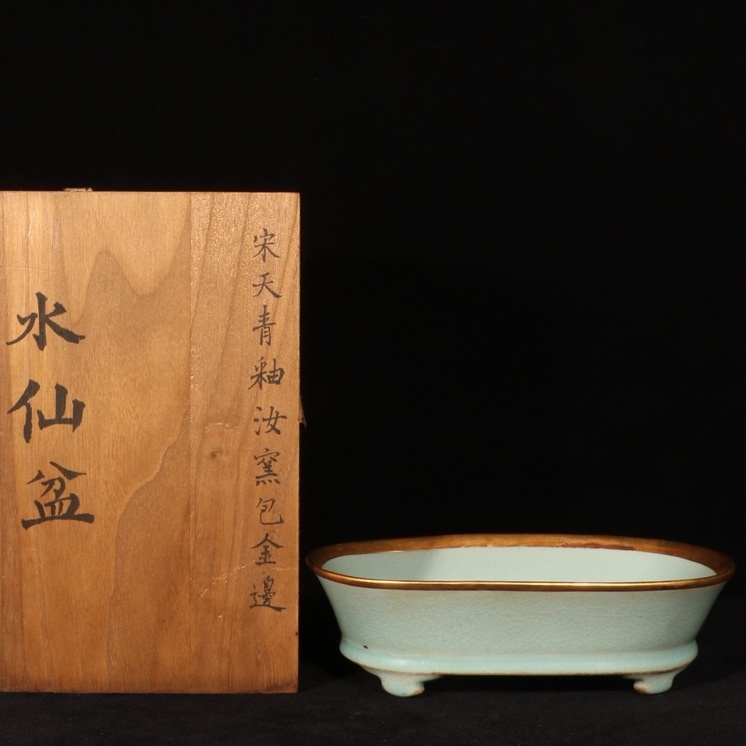 宋天青釉汝窑包金邊
水仙盆